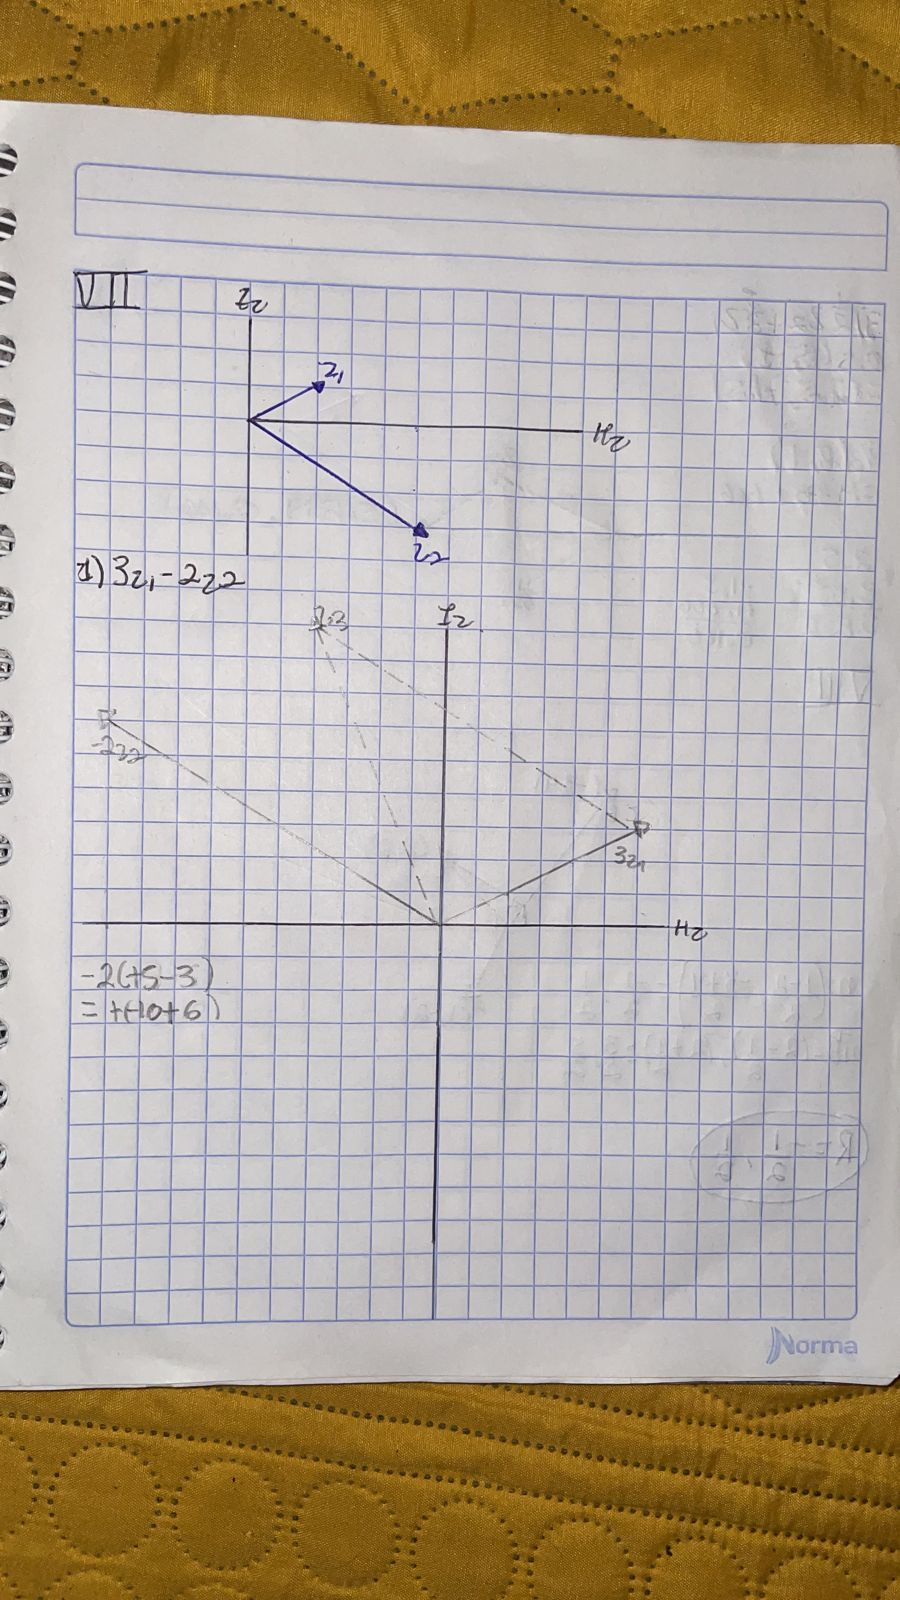 VII
Iz
z1
Hz
z2
1) 3z1 - 2z2
z3
Iz
-2z2
3z1
Hz
-2(+5-3)
= +(-10+6)
Norma